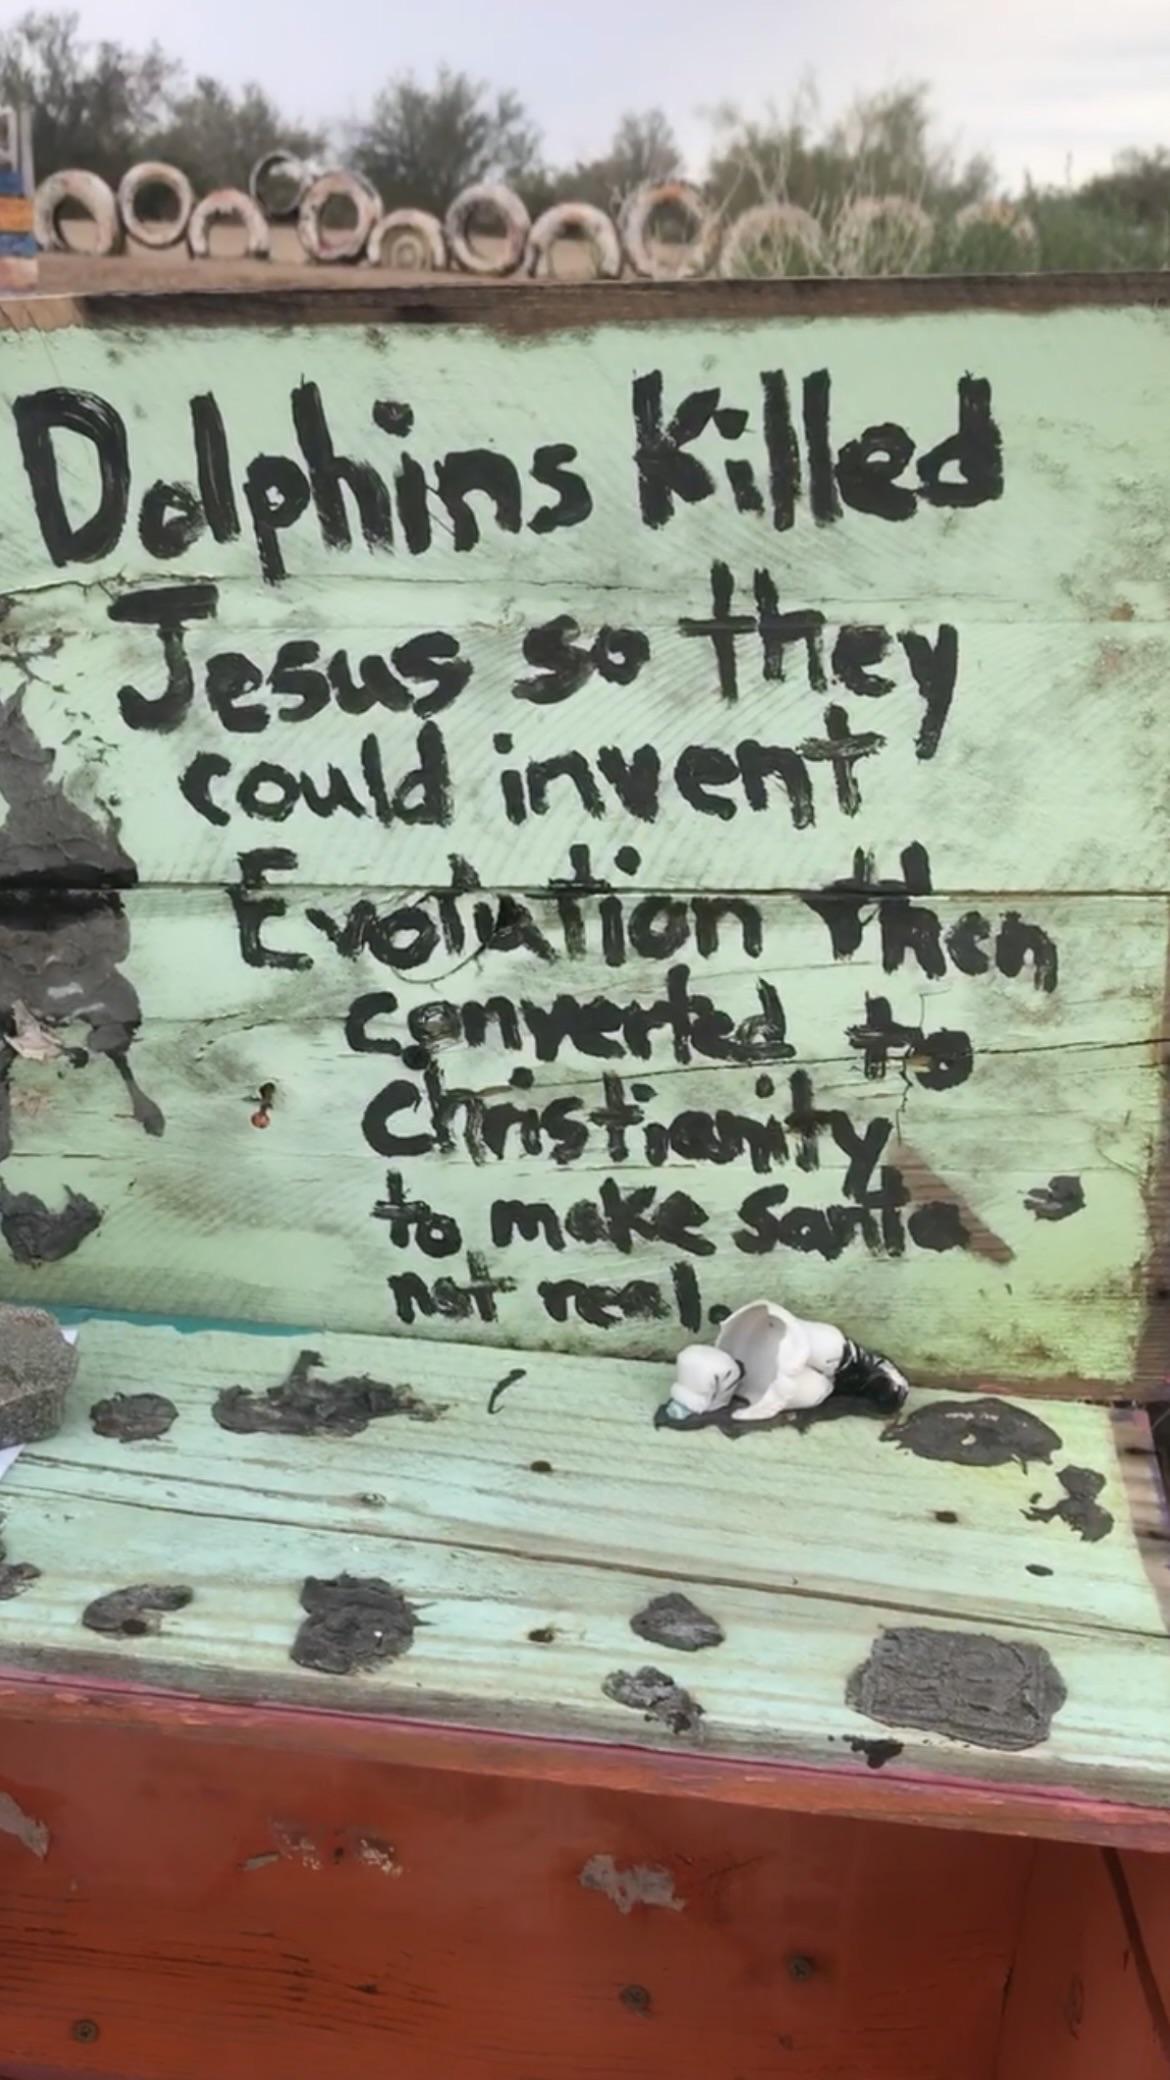 Dolphins Killed
Jesus so they
could invent
Evolution then
converted to
Christianity
to make Santa
not real.